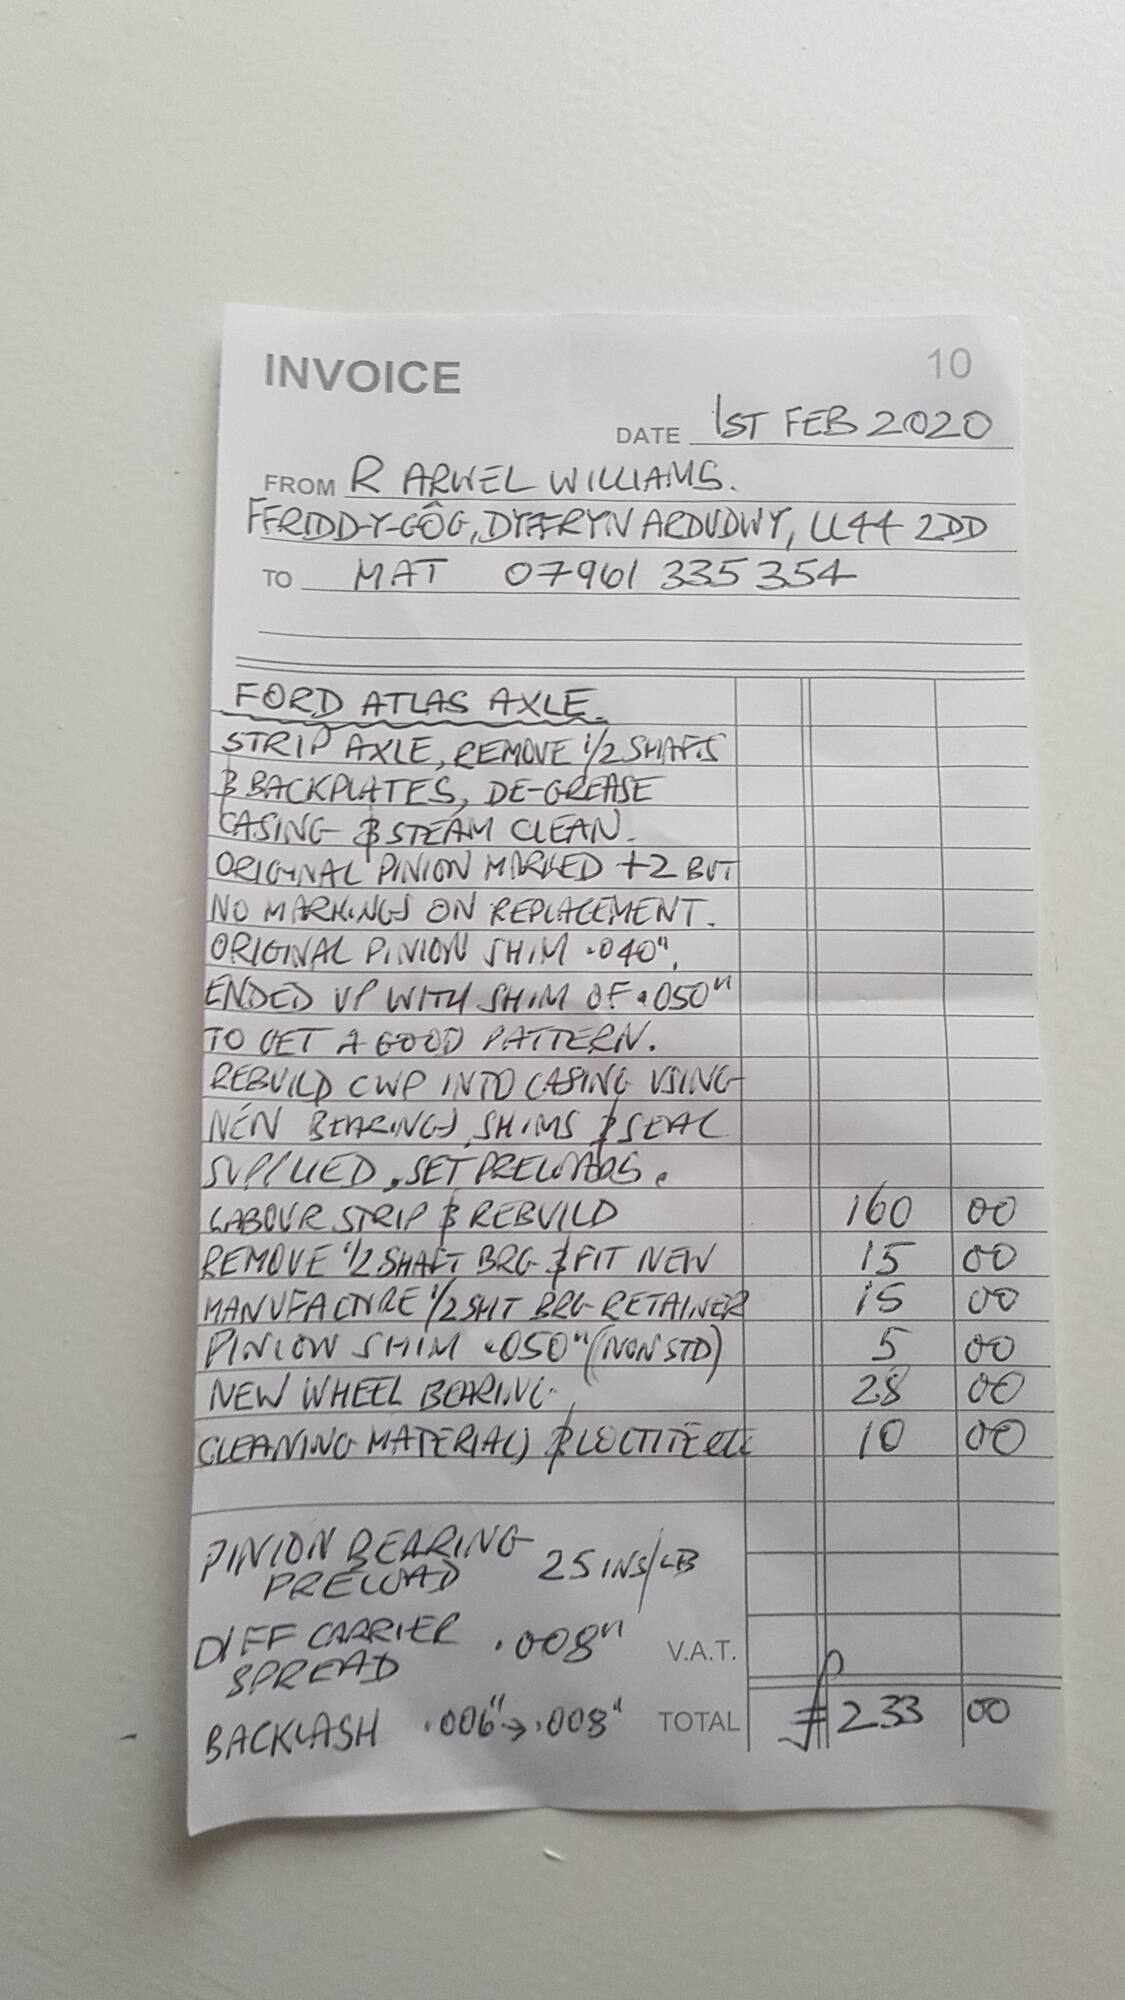 INVOICE 10
DATE 1ST FEB 2020
FROM R ARWEL WILLIAMS.
FFRIDD-Y-GÔG, DYFFRYN ARDUDWY, LL44 2DD
TO MAT 07961 335 354
FORD ATLAS AXLE.
STRIP AXLE, REMOVE 1/2 SHAFTS
& BACKPLATES, DE-GREASE
CASING & STEAM CLEAN.
ORIGINAL PINION MARKED +2 BUT
NO MARKINGS ON REPLACEMENT.
ORIGINAL PINION SHIM .040",
ENDED UP WITH SHIM OF .050"
TO GET A GOOD PATTERN.
REBUILD CWP INTO CASING USING
NEW BEARINGS, SHIMS & SEAL
SUPPLIED, SET PRELOADS.
LABOUR STRIP & REBUILD 160 00
REMOVE 1/2 SHAFT BRG & FIT NEW 15 00
MANUFACTURE 1/2 SHT BRG RETAINER 15 00
PINION SHIM .050" (NON STD) 5 00
NEW WHEEL BEARING 28 00
CLEANING MATERIALS & LOCTITE etc 10 00
PINION BEARING
PRELOAD 25 INS/LB
DIFF CARRIER
SPREAD .008" V.A.T.
BACKLASH .006" → .008" TOTAL £233 00